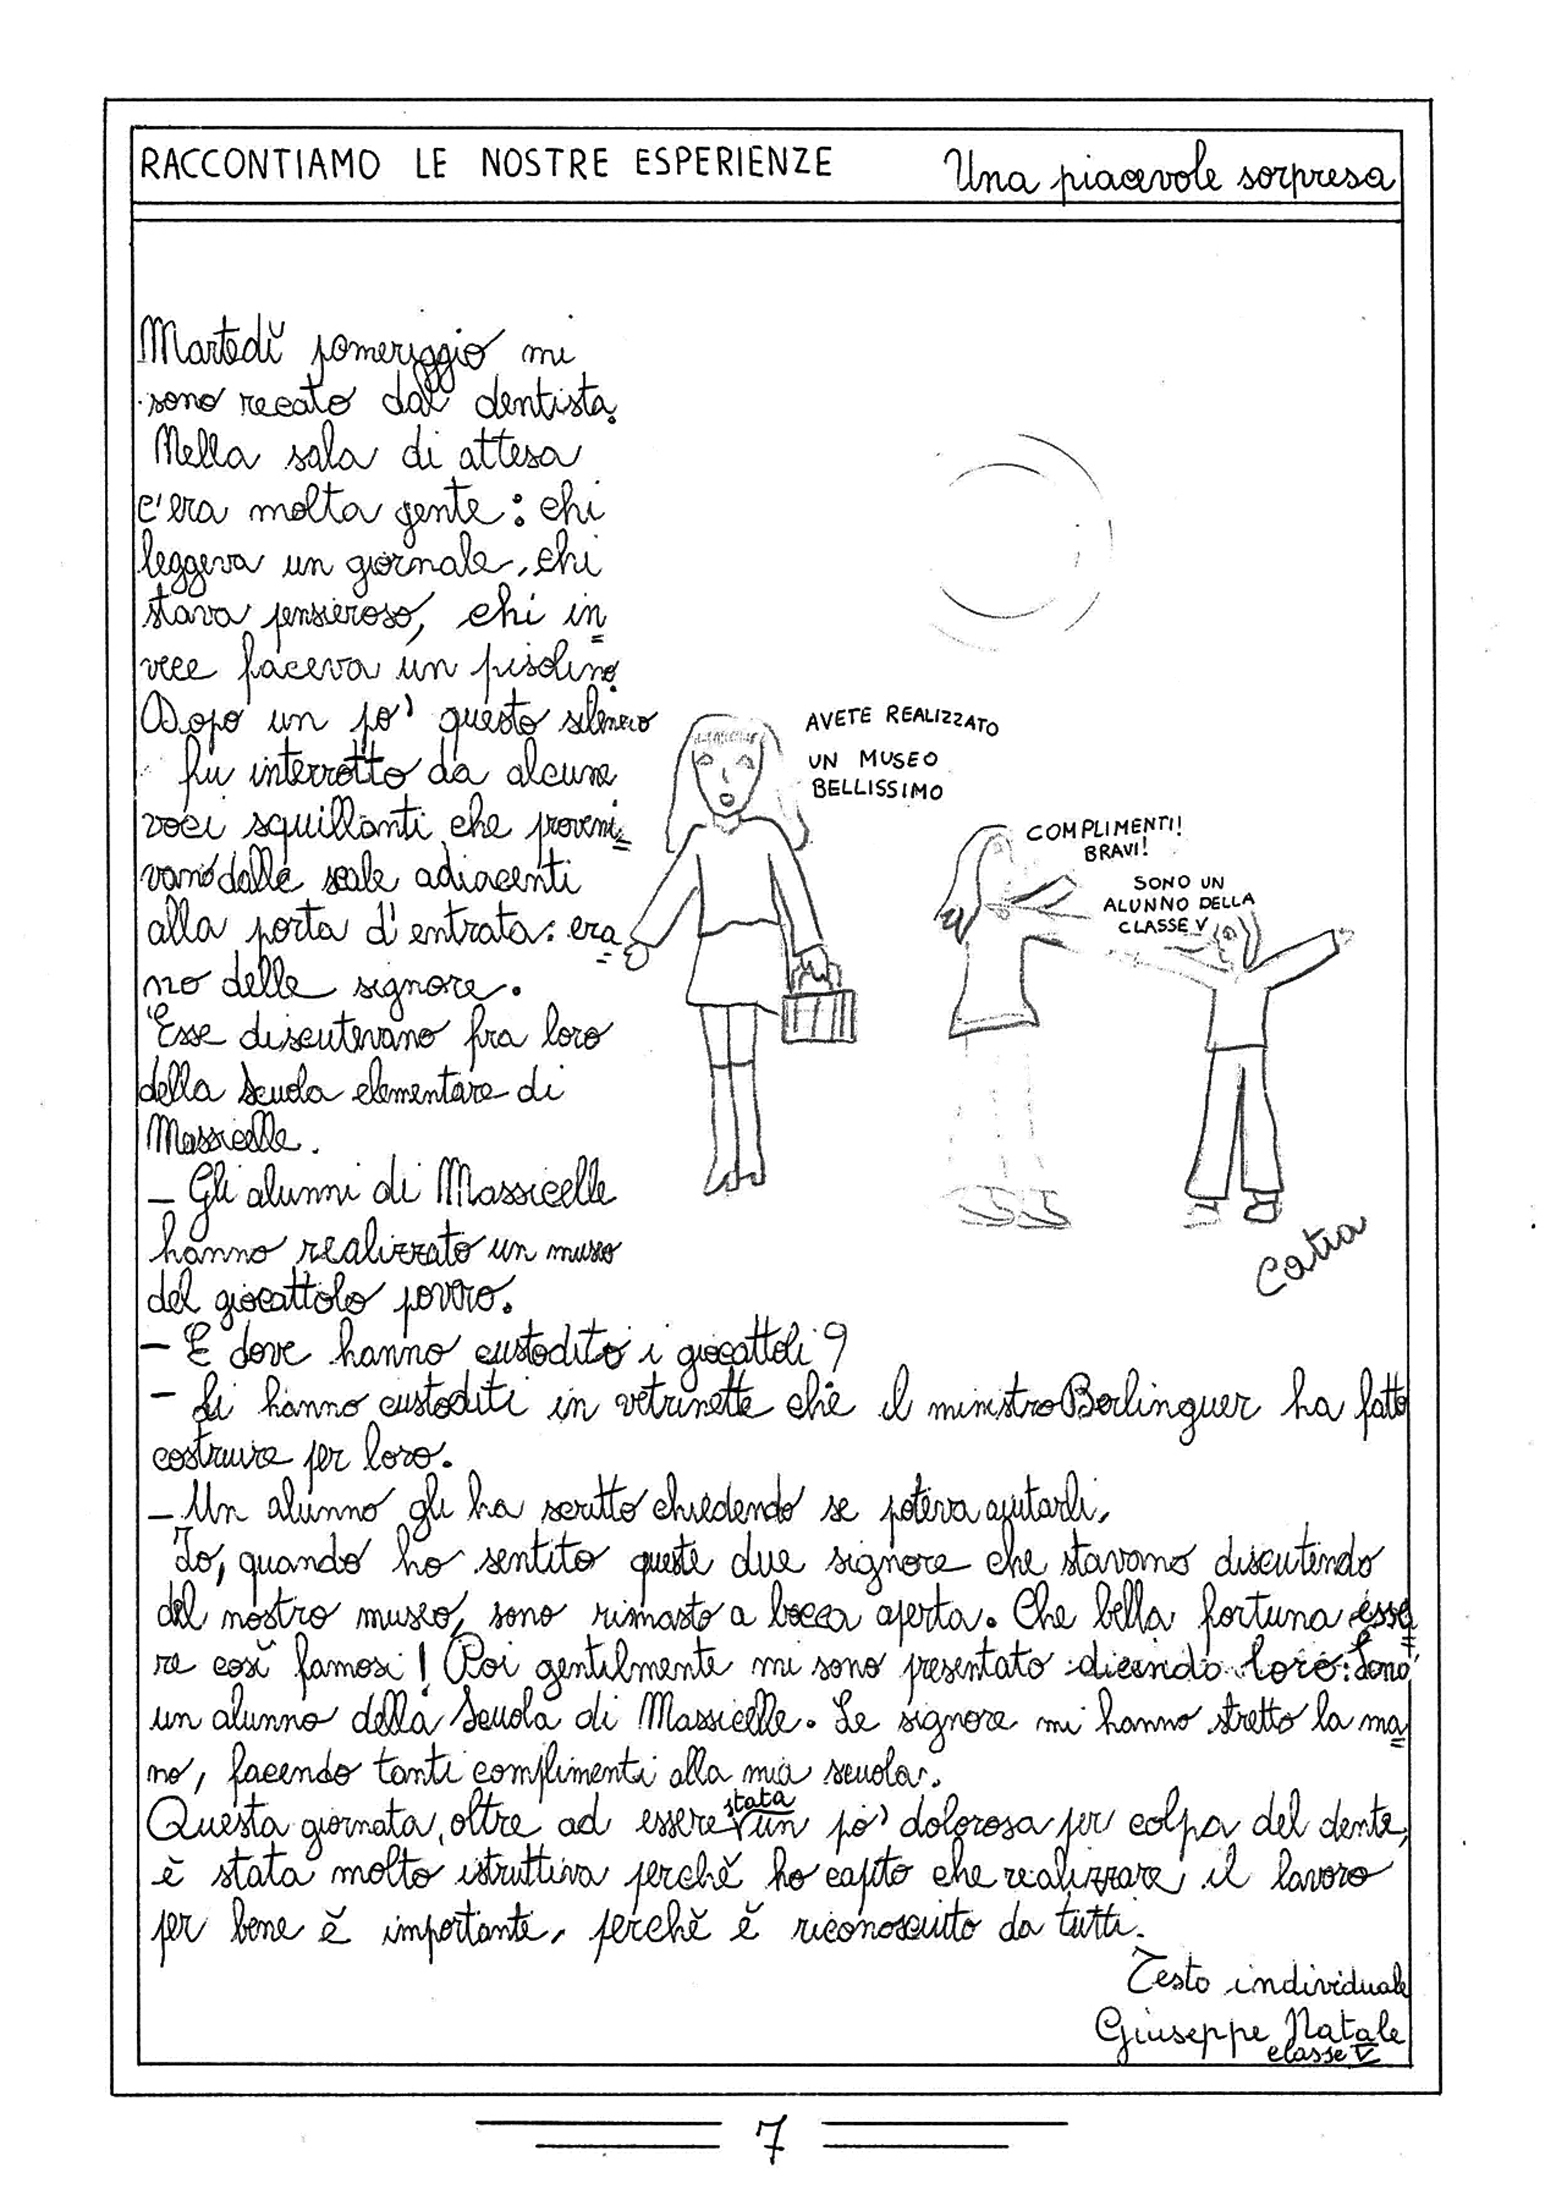 RACCONTIAMO LE NOSTRE ESPERIENZE Una piacevole sorpresa
Martedĭ pomeriggio mi
sono recato dal dentista.
Nella sala di attesa
c'era molta gente: chi
leggeva un giornale, chi
stava pensieroso, chi in=
vece faceva un pisolino.
Dopo un po' questo silenzio
fu interrotto da alcune
voci squillanti che proveni=
vano dalle scale adiacenti
alla porta d'entrata: era=
no delle signore.
Esse discutevano fra loro
della Scuola elementare di
Massicelle.
– Gli alunni di Massicelle
hanno realizzato un museo
del giocattolo povero.
– E dove hanno custodito i giocattoli?
– Li hanno custoditi in vetrinette che il ministro Berlinguer ha fatto
costruire per loro.
– Un alunno gli ha scritto chiedendo se poteva aiutarli.
Io, quando ho sentito queste due signore che stavano discutendo
del nostro museo, sono rimasto a bocca aperta. Che bella fortuna esse=
re cosĭ famosi! Poi gentilmente mi sono presentato dicendo loro: Sono
un alunno della Scuola di Massicelle. Le signore mi hanno stretto la ma=
no, facendo tanti complimenti alla mia scuola.
Questa giornata, oltre ad essere stata un po' dolorosa per colpa del dente,
è stata molto istruttiva perchĕ ho capito che realizzare il lavoro
per bene ĕ importante, perchĕ ĕ riconosciuto da tutti.
AVETE REALIZZATO
UN MUSEO
BELLISSIMO
COMPLIMENTI!
BRAVI!
SONO UN
ALUNNO DELLA
CLASSE V
Catia
Testo individuale
Giuseppe Natale
classe V
7